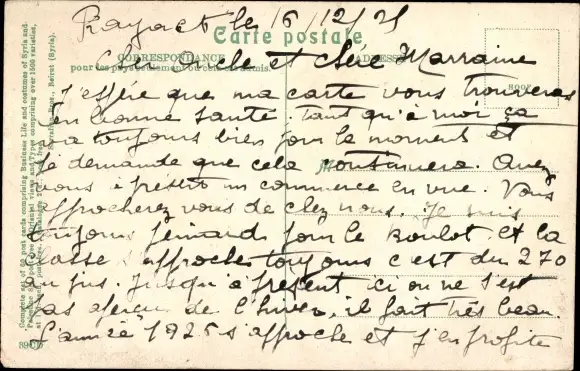 Rayack le 16/12/25
Carte postale
CORRESPONDANCE
ADRESSE
Cher Oncle et chère Marraine
J'espère que ma carte vous trouveras
en bonne santé. Tant qu'à moi ça
va toujours bien pour le moment et
je demande que cela continuera. Avez
vous à présent un commerce en vue. Vous
approcherez vous de chez nous. Je suis
toujours peinard pour le boulot et la
classe s'approche toujours c'est du 270
au jus. Jusqu'à présent ici on ne s'est
pas aperçu de l'hiver, il fait très beau.
L'année 1925 s'approche et j'en profite
Complete set of 60 post cards comprising Business Life and costumes of Syria and
Sarrafian Bros., Beirut (Syria).